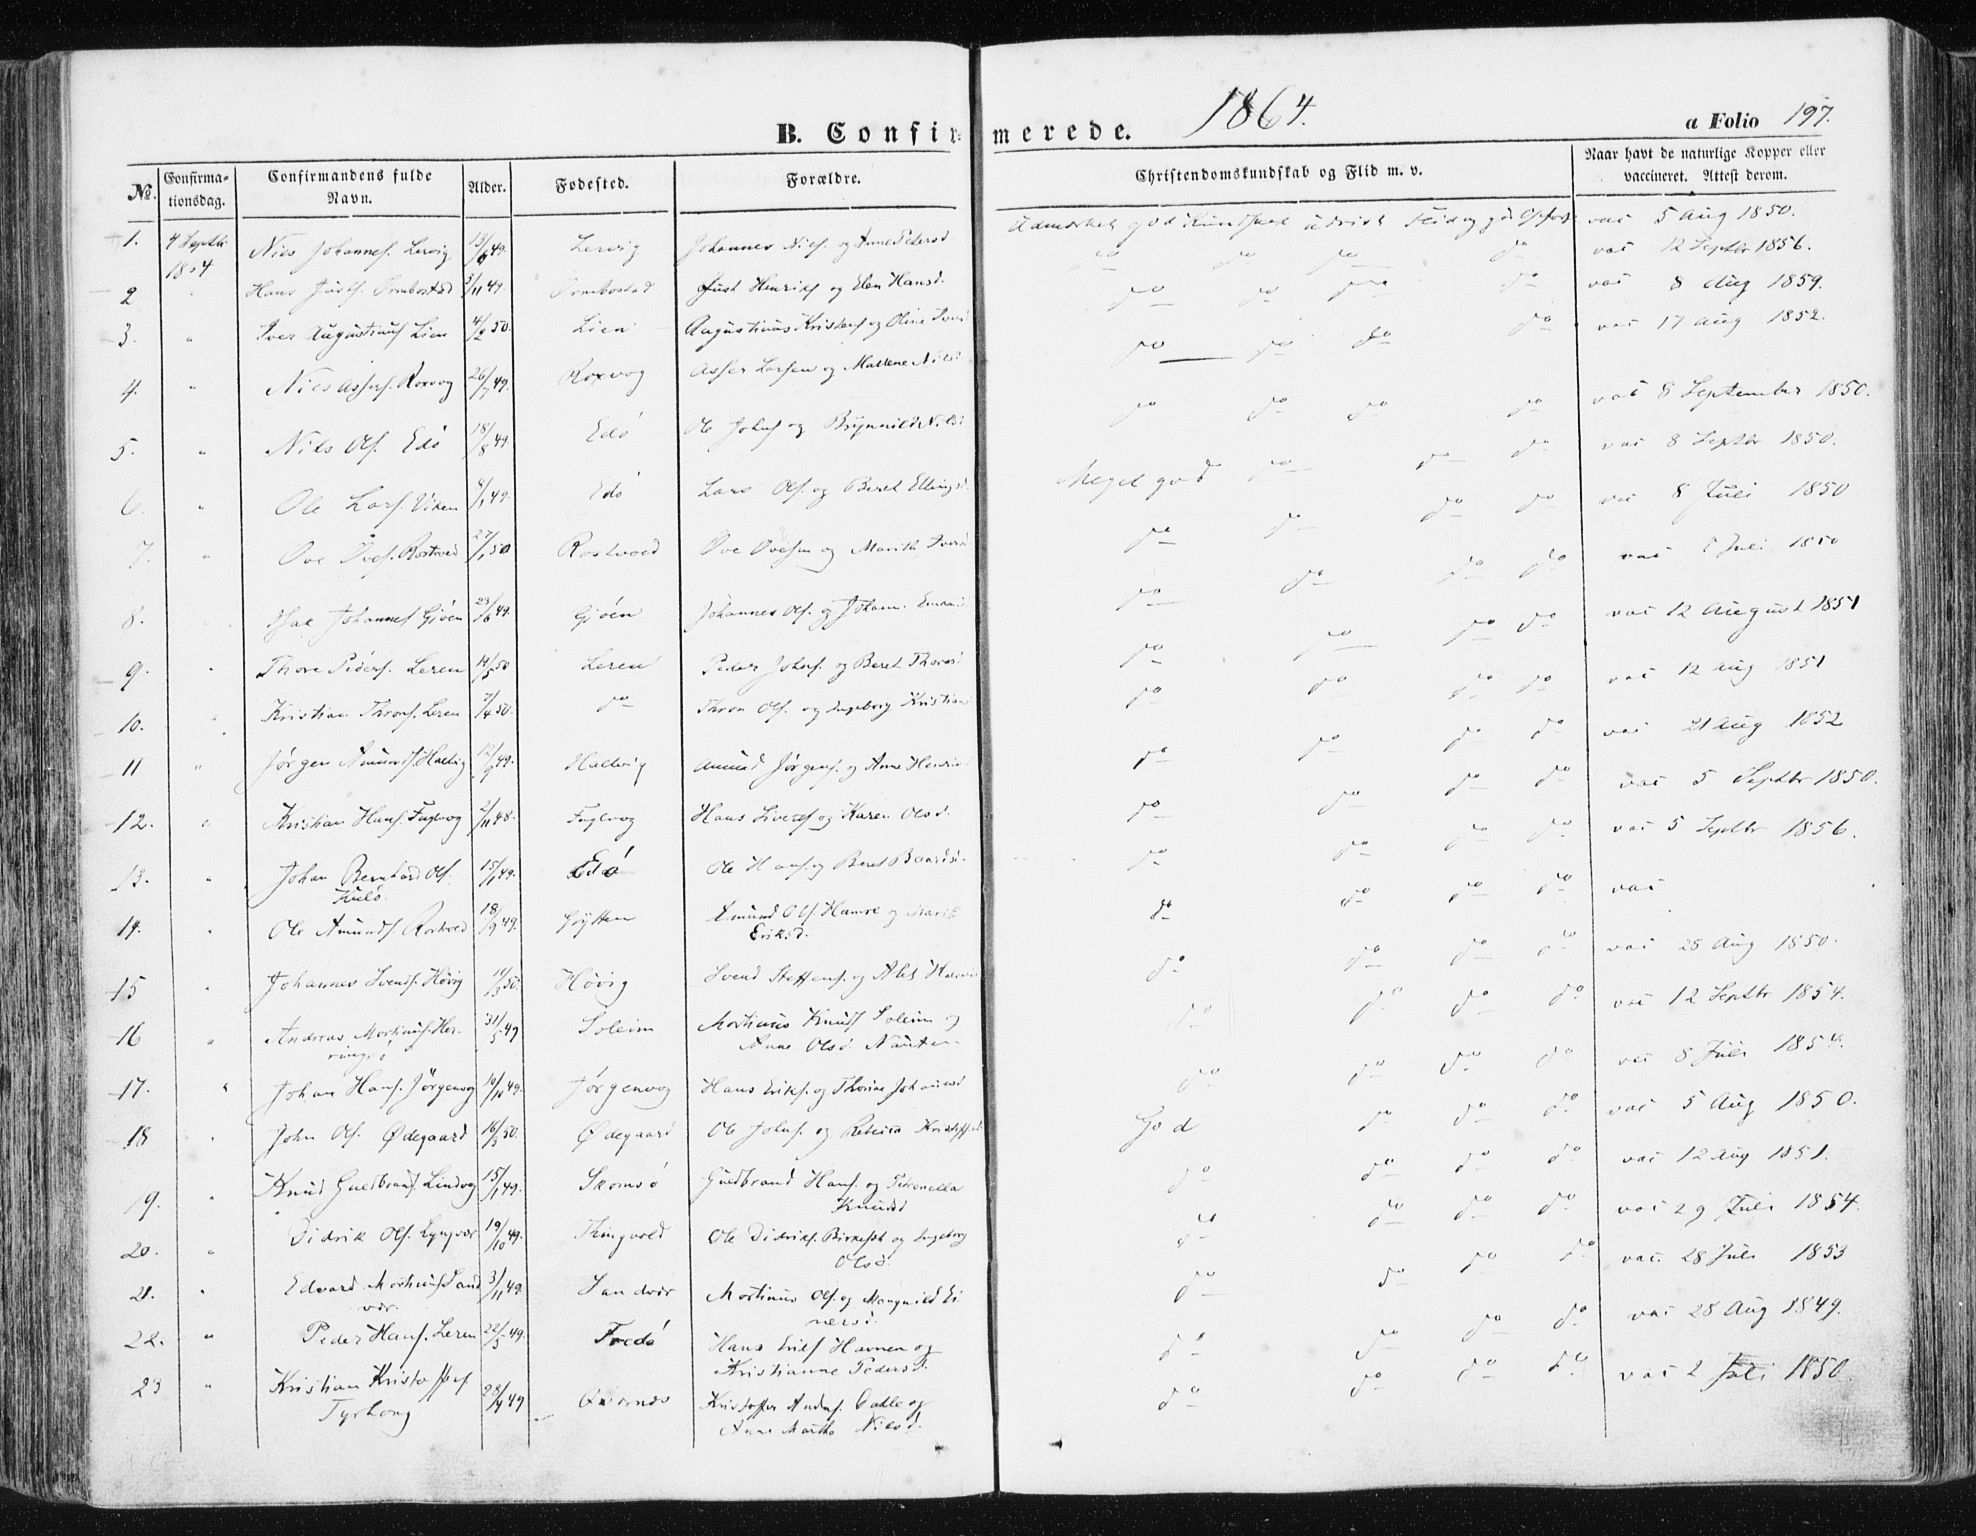 1864.
B. Confirmerede.
a Folio 197.
No. Confirmationsdag. Confirmandens fulde Navn. Alder. Fødested. Forældre. Christendomskundskab og Flid m. v. Naar havt de naturlige Kopper eller vaccineret. Attest derom.
1. 4 Septbr 1864 Niels Johannes. Lervig 49. Lervig Johannes Niels. og Anne Petersd. god Kundskab Flid og vac 5 Aug 1850.
2 " Hans Justs. Ormbostad 3/11 49. Ormbostad Just Henriks. og Elen Hansd. do do do do vac 12 Septbr 1856.
3. " Iver Augustinus. Lien 4/2 50. Lien Augustinus Kristens. og Oline Iversd do do do do vac 8 Aug 1859.
4. " Niels Assers. Roxvog 26/7 49. Roxvog Asser Larsen og Mallene Nilsd do do do do vac 17 Aug 1852.
5. " Nils Ols. Edø 18/8 49. Edø Ole Johns. og Brynnild Nilsd do do do do vac 8 September 1850.
6. " Ole Lars. Viken 49. Edø Lars Ols. og Beret Ellingsd. Meget god do do do vac 8 Septbr 1850.
7. " Ove Oves. Rostvod 27/1 50 Rostvoed Ove Ovesen og Marith Iversd do do do do vac 8 Juli 1850
8. " Isak Johannes. Gjøen 23/6 49. Gjøen Johannes Ols. og Johan. do do do do vac Juli 1850
9. " Thore Peders. Leren 14/5 50 Leren Peder Johns. og Beret Thoresd do do do do vac 12 August 1851
10. " Kristian Throns. Leren 7/4 50. do Thron Ols. og Ingeborg Kristians do do do do vac 12 Aug 1851
11 " Jørgen Amunds. Halvig 12/9 49. Halvig Amund Jørgens. og Anne Henriks do do do do vac 21 Aug 1852
12. " Kristian Hans. Fuglvog 2/11 48. Fuglvog Hans Sivers. og Karen Olsd. do do do do vac 5 Septbr 1850.
13. " Johan Bernhard Ols. Kulø. 15/1 49. Edø Ole Hans. og Beret Baardsd. do do do do vac 5 Septbr 1856.
14. " Ole Amunds. Rostvod 18/9 49. Amund Ols. Hamre og Marith Eriksd. do do do do vac
15 " Johannes Svends. Høvig 50. Høvig Svend Steffens. og do do do do vac 28 Aug 1850.
16 " Andreas Mortinus. Herringsø 31/5 49 Soleim Mortinus Knuds. Soleim og Anne Olsd. do do do do vac 12 Septbr 1854.
17. " Johan Hans. Jørgenvog 10/10 49. Jørgenvog Hans Eriks. og Thorine Johansd do do do do vac 8 Juli 1854.
18 " John Ols. Ødegaard 16/3 50. Ødegaard Ole Johns. og Rebecca Kristoffsd. God do do do vac 5 Aug 1850.
19. " Knud Guldbrans. Lindvog 15/1 49. Skomsø Guldbrand Hans. og Petronella Knudsd do do do do vac 12 Aug 1851.
20. " Didrik Ols. Lyngvær 19/10 49. Thingvold Ole Didriks. og Ingeborg Olsd. do do do do vac 29 Juli 1854.
21. " Edvard Mortinus. Sandvir. 3/11 49. Sandvir Mortinus Ols. og Magnild Einersd. do do do do vac. 28 Juli 1853
22. " Peder Hans. Leren 22/5 49. Fredø Hans Eriks. Havnen og Kristianne Pedersd. do do do do vac 28 Aug 1849.
23 " Kristian Kristoffers. Tyrhoug 28/4 49 Kristoffer Anders. Dahle og Anne Martha Nilsd. do do do do vac 2 Juli 1850.